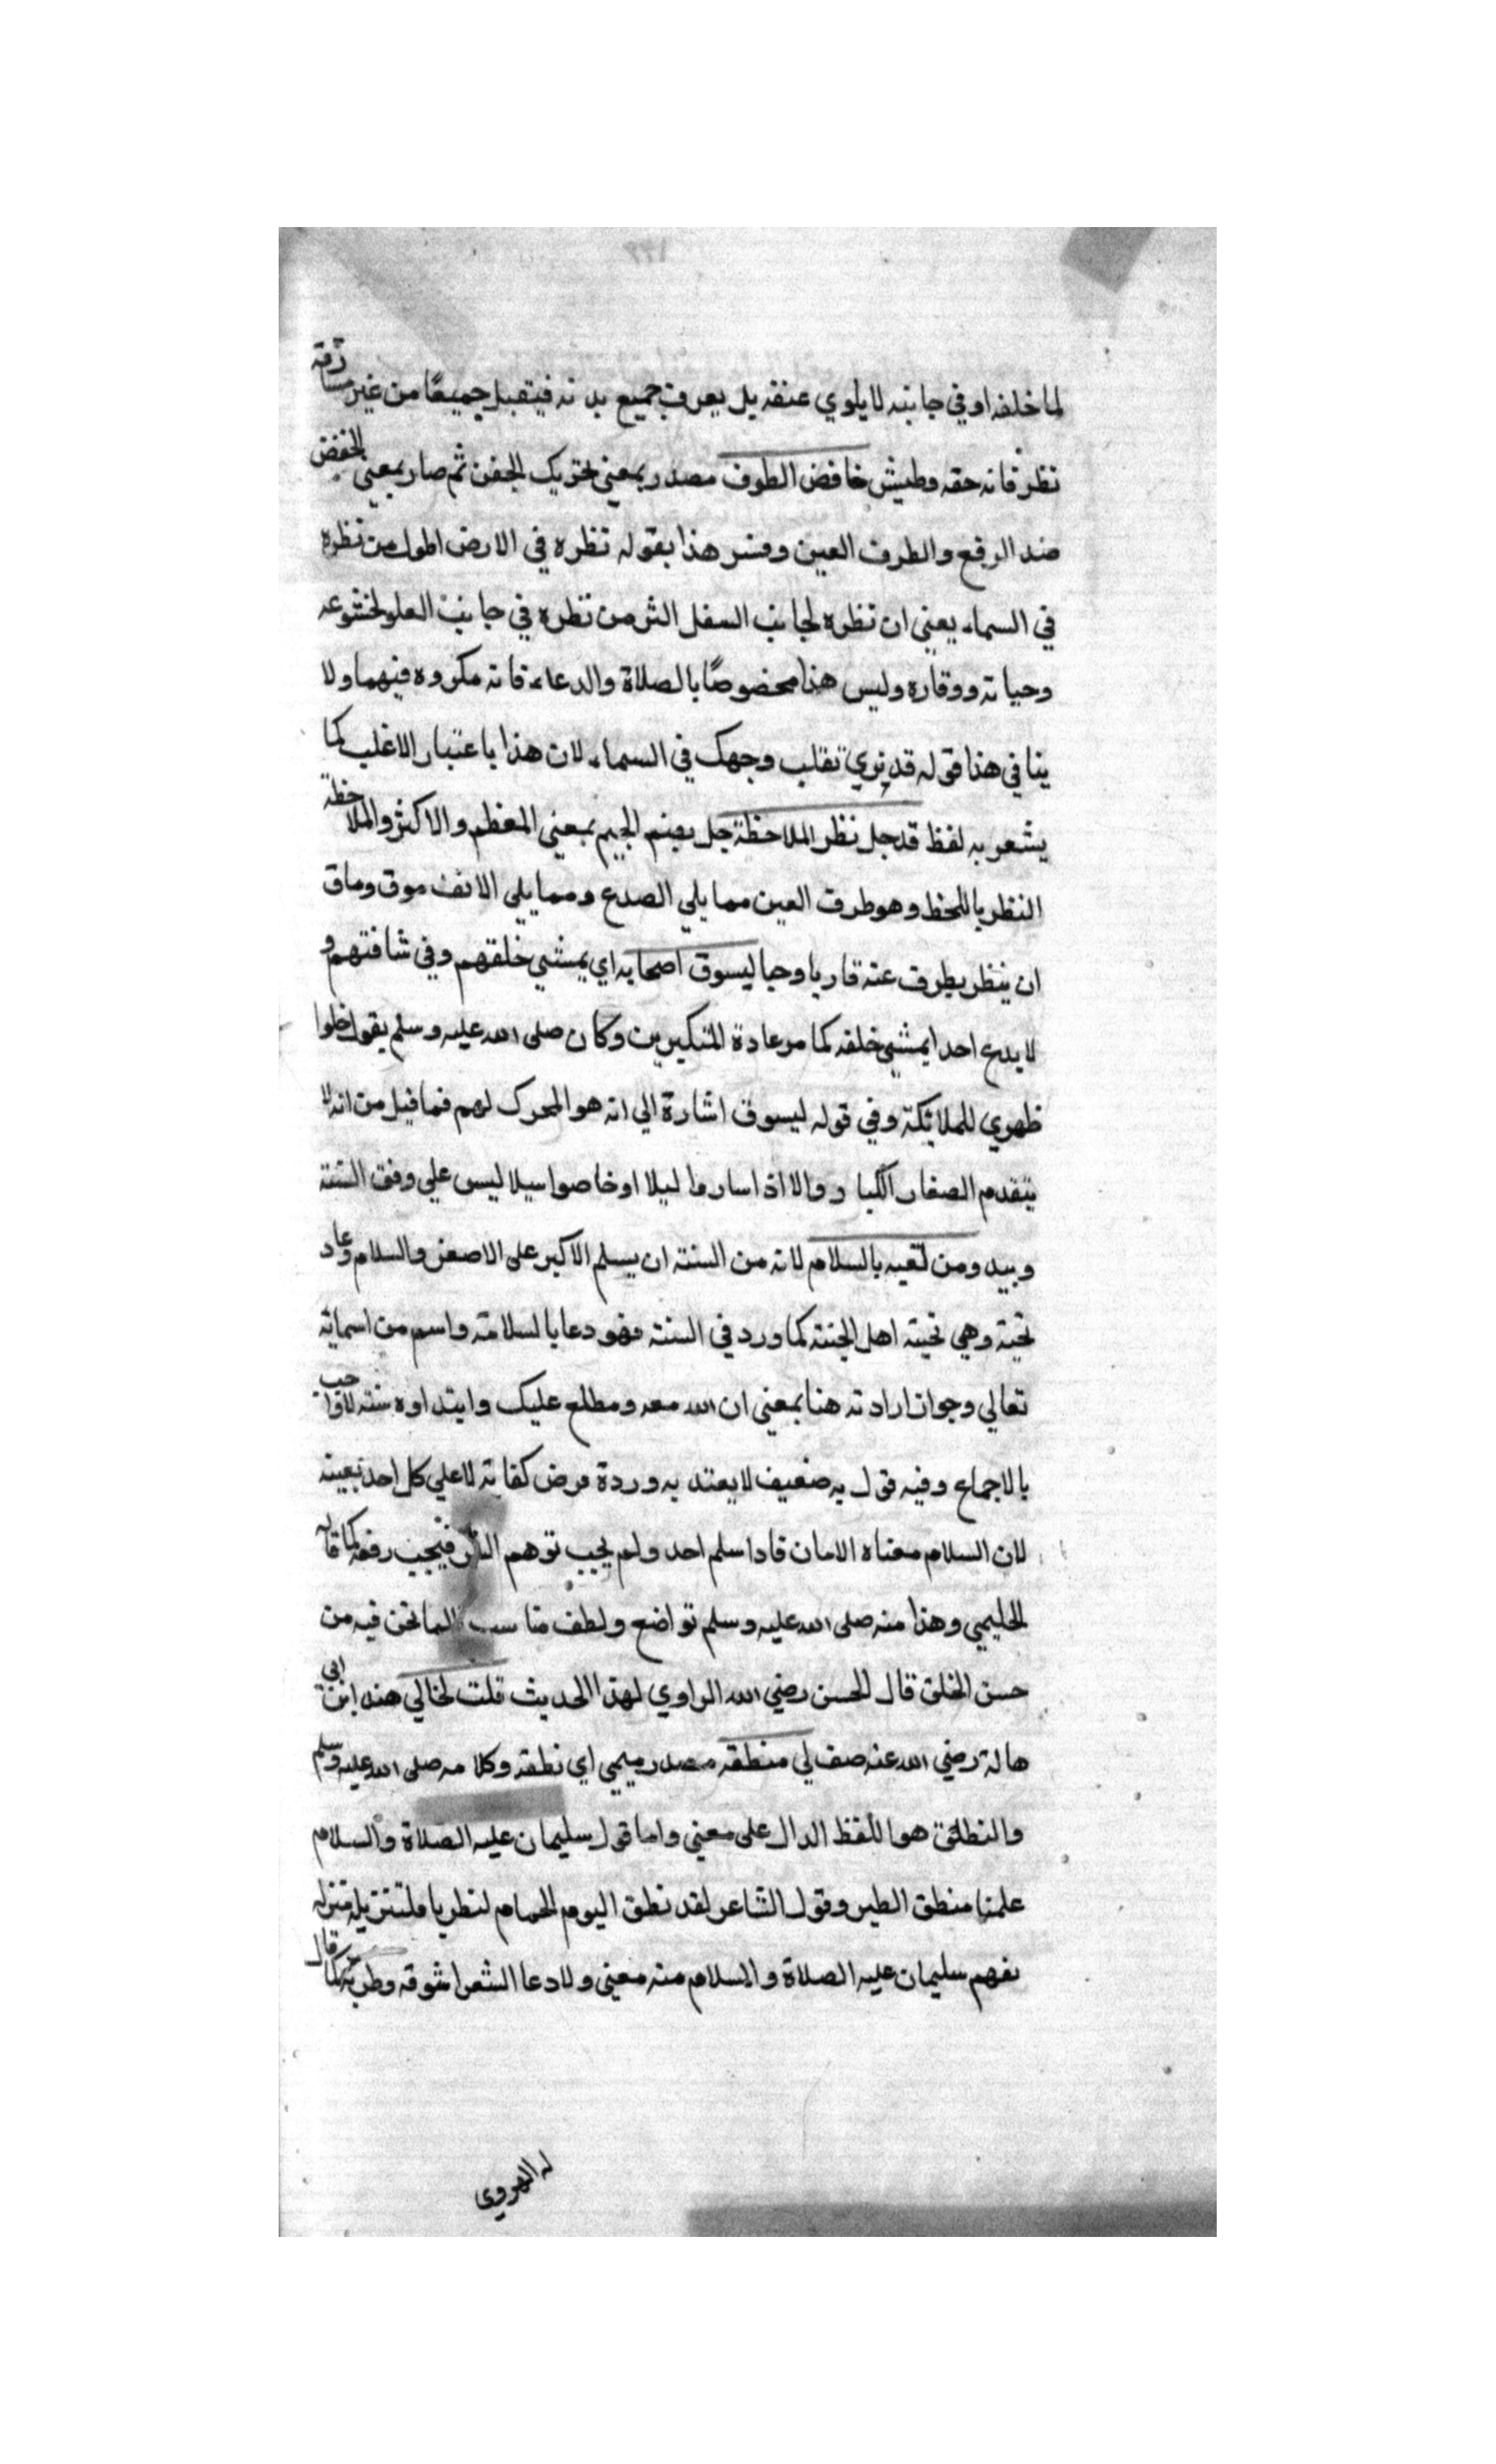 لما خلفه او في جانبه لا يلوي عنقه بل يصرف جميع بدنه فيتقبل جميعًا من غير مسارقة
نظر فانه حقه وطيش خافض الطوف مصدر بمعني تحريك الجفن ثم صار بمعني الخفض
ضد الرفع والطرف العين وفسر هذا بقوله نظره في الارض اطول من نظره
في السماء يعني ان نظره لجانب السفل اكثر من نظره في جانب العلو لخشوعه
وحيائه ووقاره وليس هذا مخصوصًا بالصلاة والدعاء فانه مكروه فيهما ولا
ينافي هذا قوله قد نري تقلب وجهك في السماء لان هذا باعتبار الاغلب كما
يشعر به لفظ قد جل نظر الملاحظة جل بضم الجيم بمعني المعظم والاكثر والملاحظة
النظر باللحظ وهو طرف العين مما يلي الصدع ومما يلي الانف موق وماق
ان ينظر بطرف عنه قاربا وحيا ليسوق اصحابه اي يمشي خلقهم وفي شافتهم و
لا يدع احدا يمشي خلفه كما مر عادة المتكبرين وكان صلى الله عليه وسلم يقول خلوا
ظهري للملائكة وفي قوله ليسوق اشارة الي انه هو المحرك لهم فما قيل من انه لا
يتقدم الصغار الكبار والا اذا ساروا ليلا او خاضوا سيلا ليس علي وفق السنة
ويبد ومن لقيه بالسلام لانه من السنة ان يسلم الاكبر على الاصغر والسلام دعاء و
تحية وهي تحية اهل الجنة كما ورد في السنة فهو دعا بالسلامة واسم من اسمائه
تعالي وجواز ارادته هنا بمعني ان الله معه ومطلع عليك وابتداوه سنة لا واجب
بالاجماع وفيه قول به ضعيف لا يعتد به وردة فرض كفاية لا علي كل احد بعينه
لان السلام معناه الامان فاذا سلم احد ولم يجب توهم الشر فيجب رفعه كما قاله
الحليمي وهذا منه صلى الله عليه وسلم تواضع ولطف مناسب لما نحن فيه من
حسن الخلق قال الحسن رضي الله الراوي لهذا الحديث قلت لخالي هند ابن ابي
هالة رضي الله عنه صف لي منطقه مصدر ميمي اي نطقه وكلامه صلى الله عليه وسلم
والنطق هو اللفظ الدال على معني واما قول سليمان عليه الصلاة والسلام
علمنا منطق الطير وقول الشاعر لقد نطق اليوم الحمام لنطربا فلتنزيله منزله
بفهم سليمان عليه الصلاة والسلام منه معني ولادعا الشعرا شوقه وطربه كما قال
له الهروي